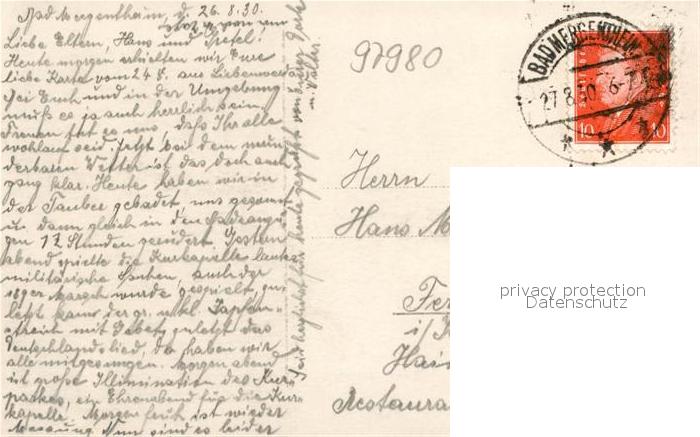 Bad Mergentheim, d. 26.8.30.
Liebe Eltern, Hans und Gretel!
Heute morgen erhielten wir Eure
liebe Karte vom 24. d. aus Liebenwerda
Bei Euch und in der Umgebung
muß es ja auch herrlich sein.
Freuen tut es uns, daß Ihr alle
wohlauf seid. Jetzt bei dem wun-
derbaren Wetter ist das doch auch
ganz klar. Heute haben wir in
der Tauber gebadet, uns gesonnt
u. dann gleich in den
gen 1½ Stunden gerudert. Gestern
abend spielte die Kurkapelle lauter
militärische Sachen, auch der
Marsch wurde gespielt, zu-
letzt kam der gr. Zapfen-
streich mit Gebet, zuletzt das
Deutschlandlied, da haben wir
alle mitgesungen. Morgen abend
ist große Illumination des Kur-
parkes, ein Ehrenabend für die Kur-
kapelle. Morgen früh ist wieder
Messung. Nun sind es leider
Seid herzlichst für heute gegrüßt von
u. Vater.
97980
BAD MERGENTHEIM
27.8.30. 6-7
10 10
Herrn
Hans M
Fer
i/
Restaura
privacy protection
Datenschutz